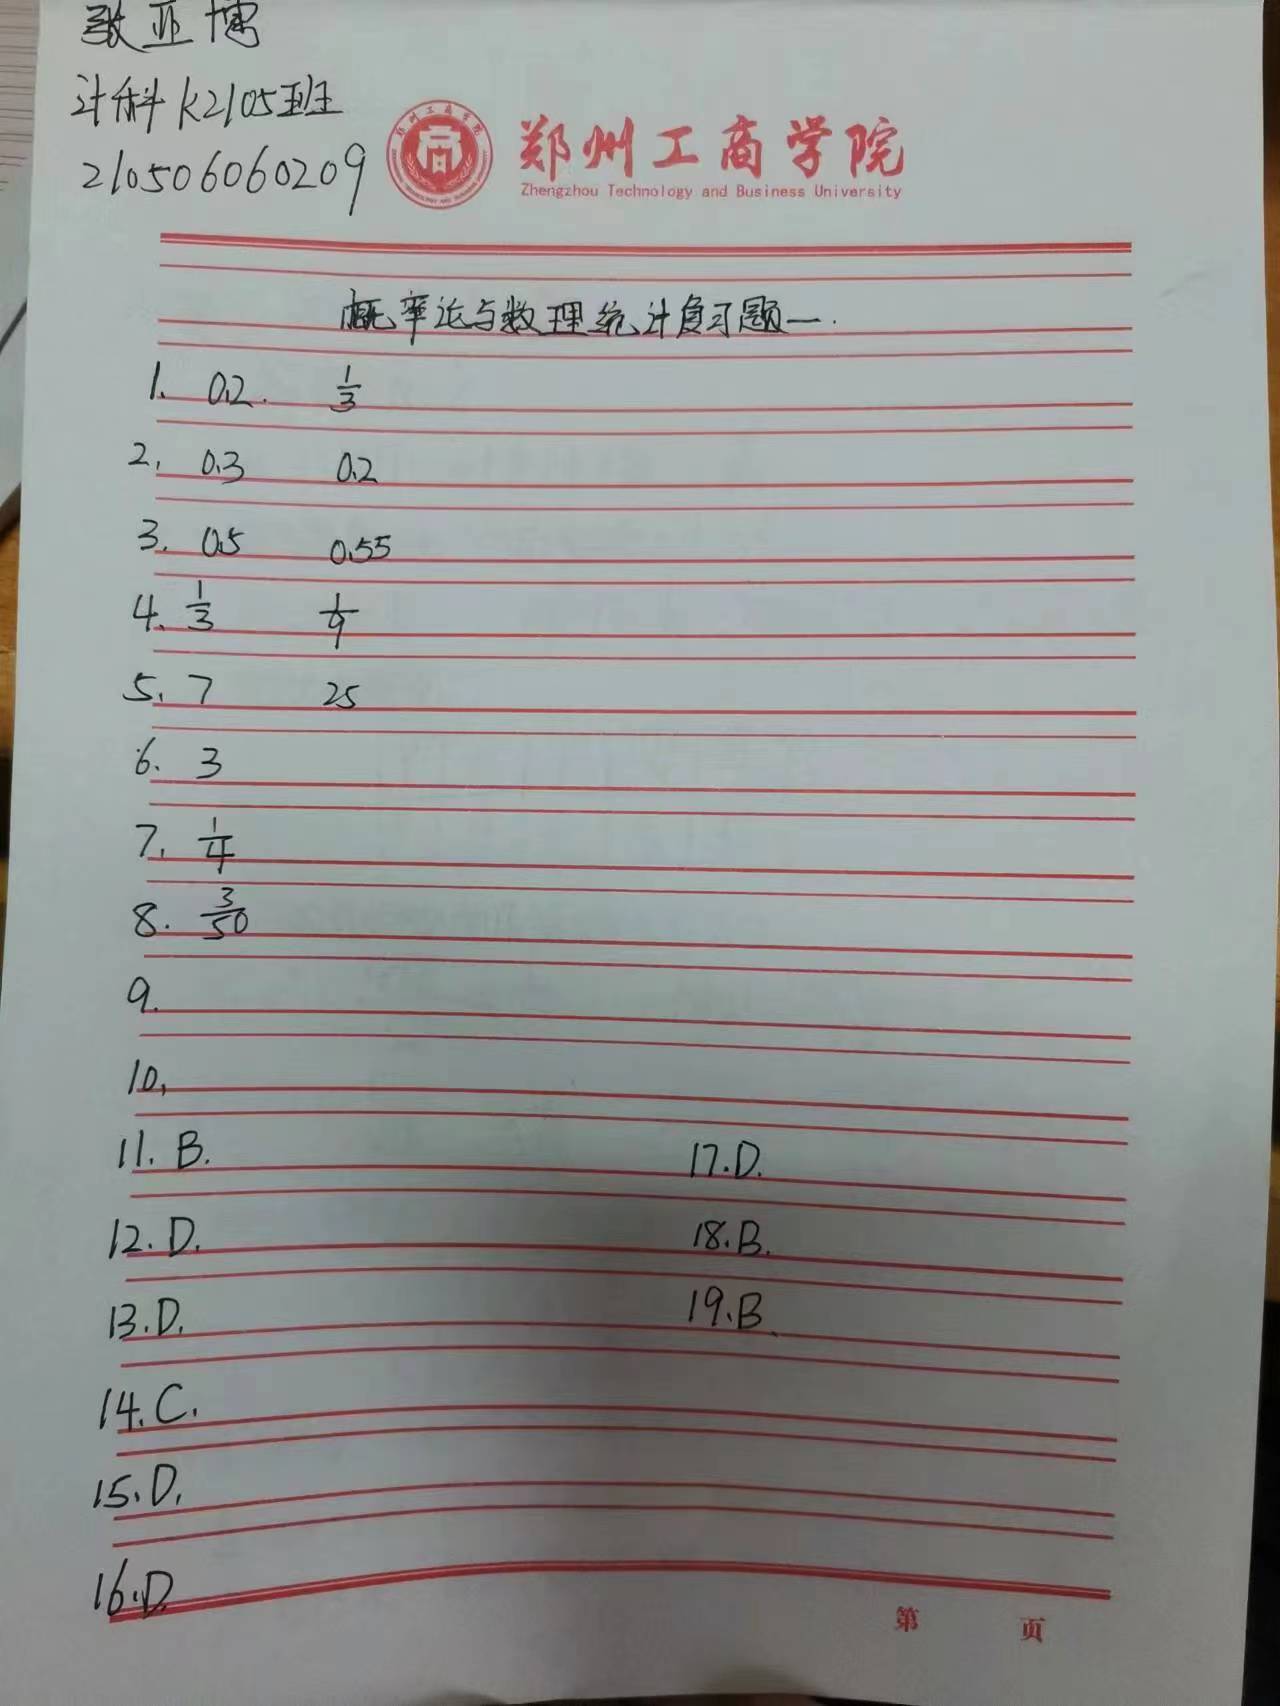 张亚博
计科K2105班
210506060209
郑州工商学院
Zhengzhou Technology and Business University
概率论与数理统计复习题一.
1. 0.2. 1/3
2. 0.3 0.2
3. 0.5 0.55
4. 1/3 1/9
5. 7 25
6. 3
7. 1/4
8. 3/50
9.
10.
11. B.
12. D.
13. D.
14. C.
15. D.
16. D.
17. D.
18. B.
19. B.
第 页